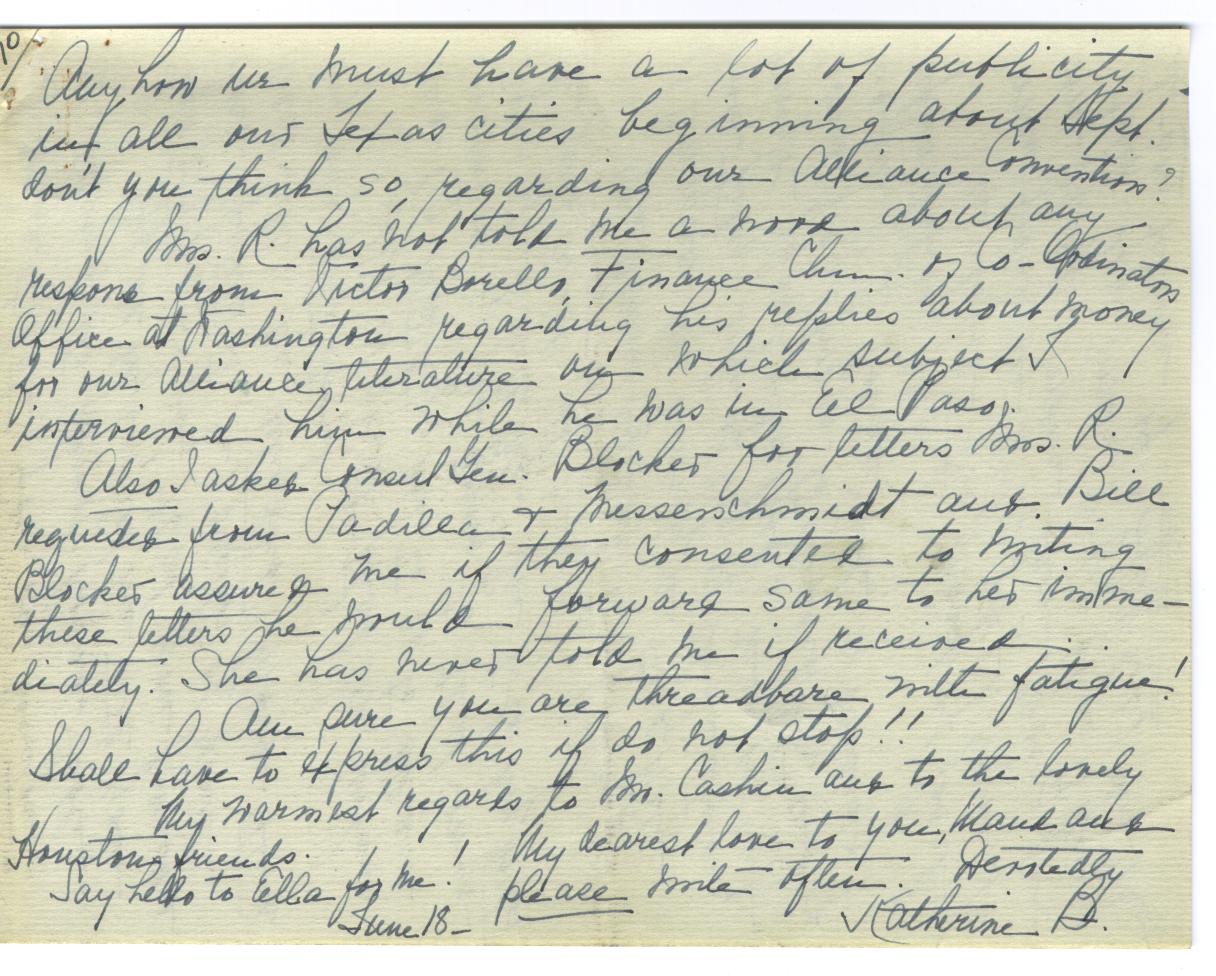 10/
Anyhow we must have a lot of publicity
in all our Texas cities beginning about Sept.
don't you think so, regarding our Alliance Convention?
Mrs. R. has not told me a word about any
response from Victor Borello, Finance Chm. of Co-Ordinators
Office at Washington regarding his replies about money
for our Alliance literature on which subject I
interviewed him while he was in El Paso.
Also I asked Consul Gen. Blocker for letters Mrs. R.
requested from Padilla & Messerschmidt and Bill
Blocker assured me if they consented to writing
these letters he would forward same to her imme-
diately. She has never told me if received.
Am sure you are threadbare with fatigue!
Shall have to express this if do not stop!!
My warmest regards to Mr. Cashin and to the lovely
Houston friends. ! My dearest love to you, Maud and
Say hello to Ella for me! please write often. Devotedly
June 18 - Katherine B.